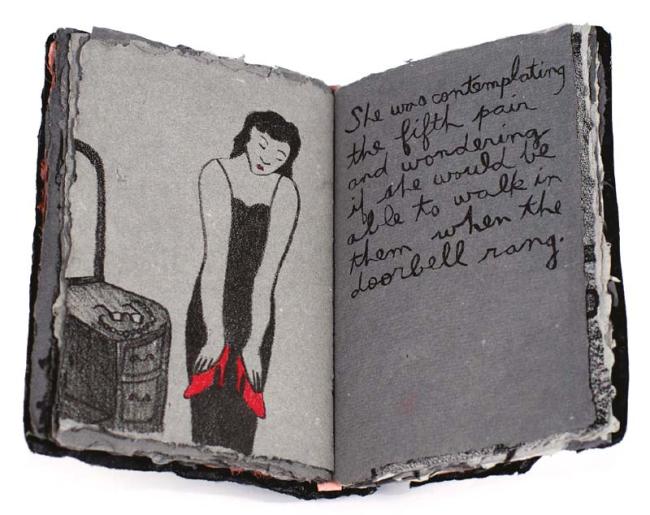 She was contemplating
the fifth pair
and wondering
if she would be
able to walk in
them when the
doorbell rang.